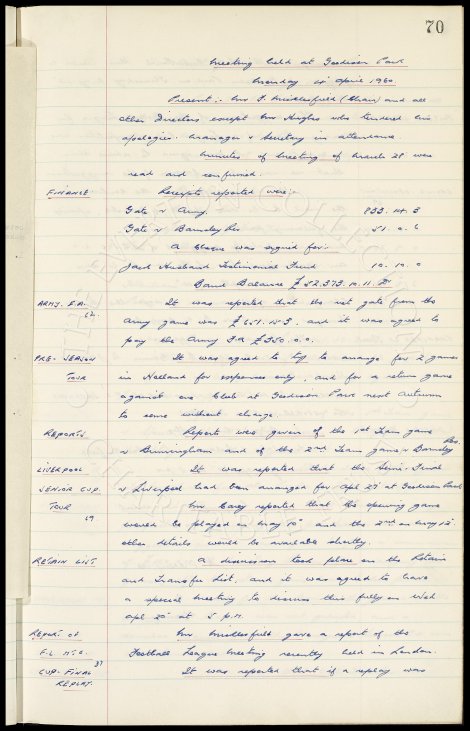 70
Meeting held at Goodison Park
Monday 4th April 1960.
Present :- Mr F. Micklesfield (Chair) and all
other Directors except Mr Hughes who tendered his
apologies. Manager & Secretary in attendance
Minutes of meeting of March 28 were
read and confirmed.
FINANCE Receipts reported were:-
Gate v Army. 833. 14. 3
Gate v Barnsley Res 51. 0. 6
A cheque was signed for:-
Jack Husband Testimonial Fund 10. 10. 0
Bank Balance £52.573. 10. 11.
ARMY. F.A. It was reported that the net gate from the
62
Army game was £651. 18. 3. and it was agreed to
pay the Army FA £350. 0. 0.
PRE-SEASON It was agreed to try to arrange for 2 games
TOUR in Holland for expenses only, and for a return game
against one Club at Goodison Park next Autumn
to same without change.
REPORTS Reports were given of the 1st Team game
v Birmingham and of the 2nd Team game v Barnsley Res.
LIVERPOOL It was reported that the Semi-Final
SENIOR CUP. v Liverpool had been arranged for Apl 27th at Goodison Park
TOUR Mr Carey reported that the opening game
69
would be played on May 10th and the 2nd on May 12th
other details would be available shortly.
RETAIN LIST A discussion took place on the Retain
and Transfer List, and it was agreed to have
a special meeting to discuss this fully on Wed
Apl 20th at 5 p.m.
REPORT of Mr Micklesfield gave a report of the
F.L. MTG. Football League Meeting recently held in London.
CUP-FINAL 37 It was reported that if a replay was
REPLAY.